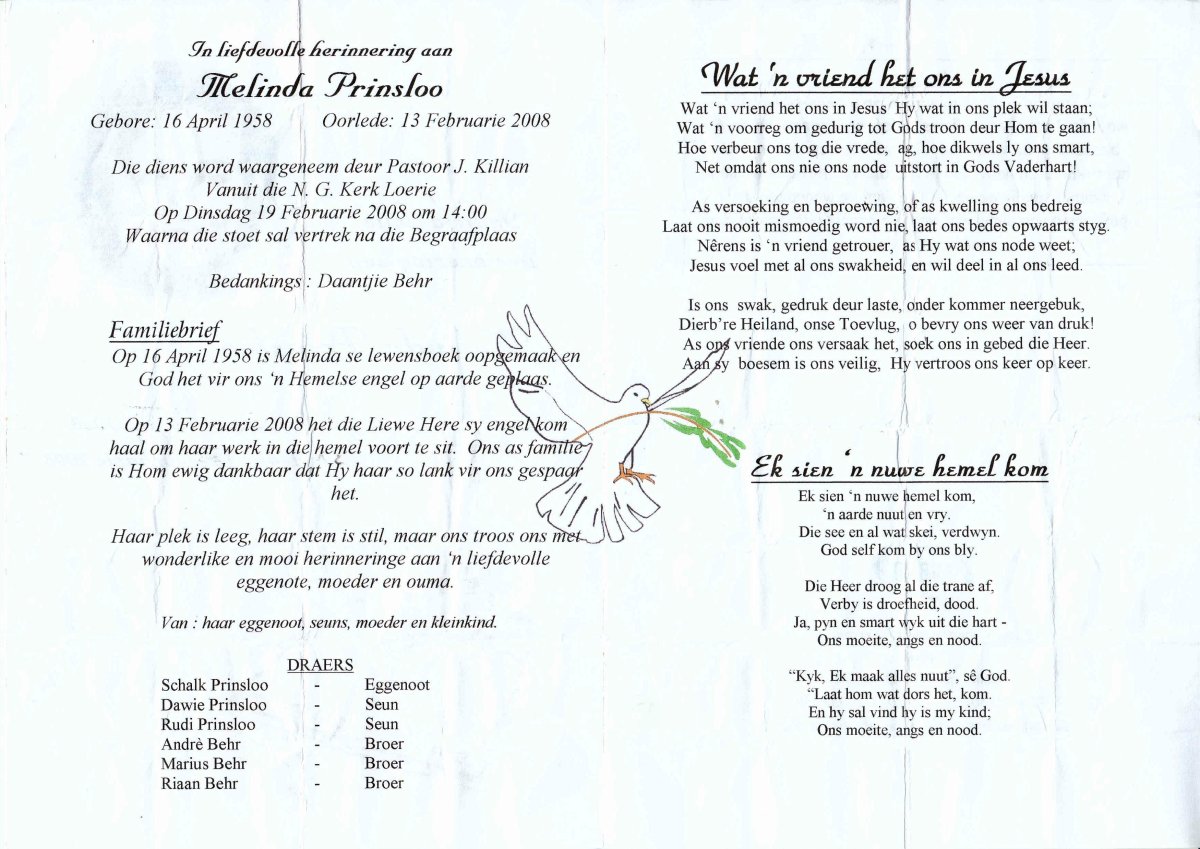 In liefdevolle herinnering aan
Melinda Prinsloo
Gebore: 16 April 1958 Oorlede: 13 Februarie 2008
Die diens word waargeneem deur Pastoor J. Killian
Vanuit die N. G. Kerk Loerie
Op Dinsdag 19 Februarie 2008 om 14:00
Waarna die stoet sal vertrek na die Begraafplaas
Bedankings : Daantjie Behr
Familiebrief
Op 16 April 1958 is Melinda se lewensboek oopgemaak en
God het vir ons ‘n Hemelse engel op aarde geplaas.
Op 13 Februarie 2008 het die Liewe Here sy engel kom
haal om haar werk in die hemel voort te sit. Ons as familie
is Hom ewig dankbaar dat Hy haar so lank vir ons gespaar
het.
Haar plek is leeg, haar stem is stil, maar ons troos ons met
wonderlike en mooi herinneringe aan ‘n liefdevolle
eggenote, moeder en ouma.
Van : haar eggenoot, seuns, moeder en kleinkind.
DRAERS
Schalk Prinsloo - Eggenoot
Dawie Prinsloo - Seun
Rudi Prinsloo - Seun
Andrè Behr - Broer
Marius Behr - Broer
Riaan Behr - Broer
Wat ‘n vriend het ons in Jesus
Wat ‘n vriend het ons in Jesus Hy wat in ons plek wil staan;
Wat ‘n voorreg om gedurig tot Gods troon deur Hom te gaan!
Hoe verbeur ons tog die vrede, ag, hoe dikwels ly ons smart,
Net omdat ons nie ons node uitstort in Gods Vaderhart!
As versoeking en beproewing, of as kwelling ons bedreig
Laat ons nooit mismoedig word nie, laat ons bedes opwaarts styg.
Nêrens is ‘n vriend getrouer, as Hy wat ons node weet;
Jesus voel met al ons swakheid, en wil deel in al ons leed.
Is ons swak, gedruk deur laste, onder kommer neergebuk,
Dierb’re Heiland, onse Toevlug, o bevry ons weer van druk!
As ons vriende ons versaak het, soek ons in gebed die Heer.
Aan sy boesem is ons veilig, Hy vertroos ons keer op keer.
Ek sien ‘n nuwe hemel kom
Ek sien ‘n nuwe hemel kom,
‘n aarde nuut en vry.
Die see en al wat skei, verdwyn.
God self kom by ons bly.
Die Heer droog al die trane af,
Verby is droefheid, dood.
Ja, pyn en smart wyk uit die hart -
Ons moeite, angs en nood.
“Kyk, Ek maak alles nuut”, sê God.
“Laat hom wat dors het, kom.
En hy sal vind hy is my kind;
Ons moeite, angs en nood.